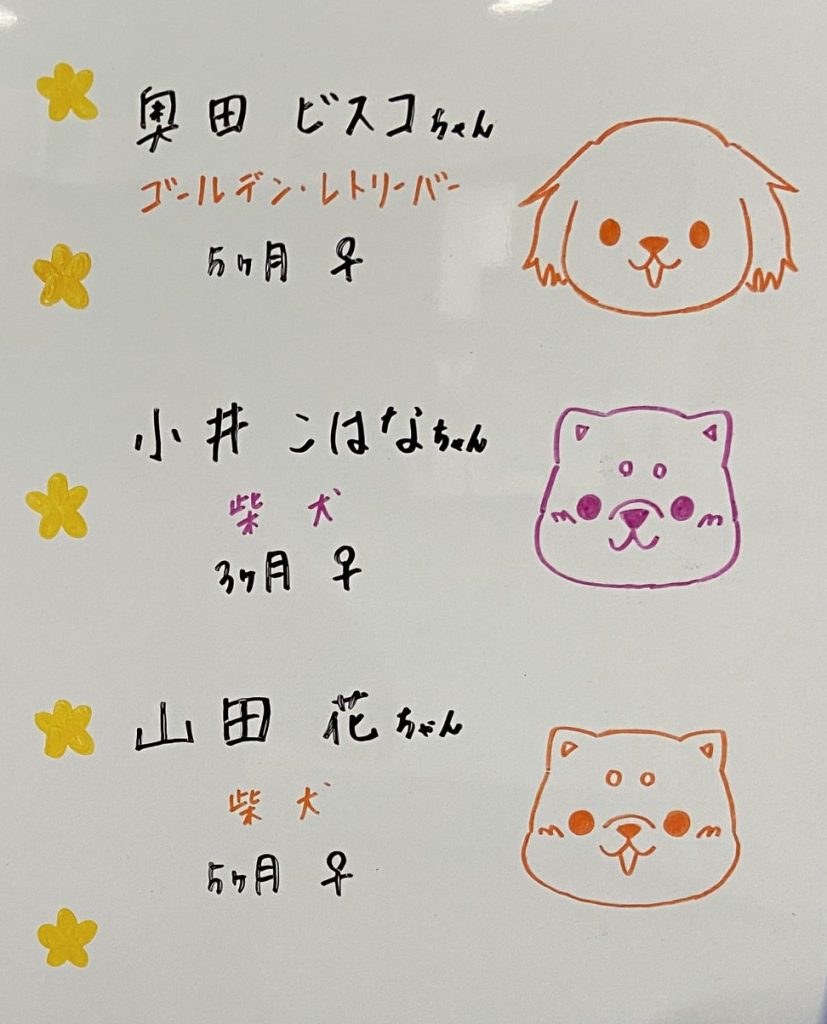 奥田 ビスコちゃん
ゴールデン・レトリーバー
5ヶ月 ♀
小井 こはなちゃん
柴犬
3ヶ月 ♀
山田 花ちゃん
柴犬
5ヶ月 ♀